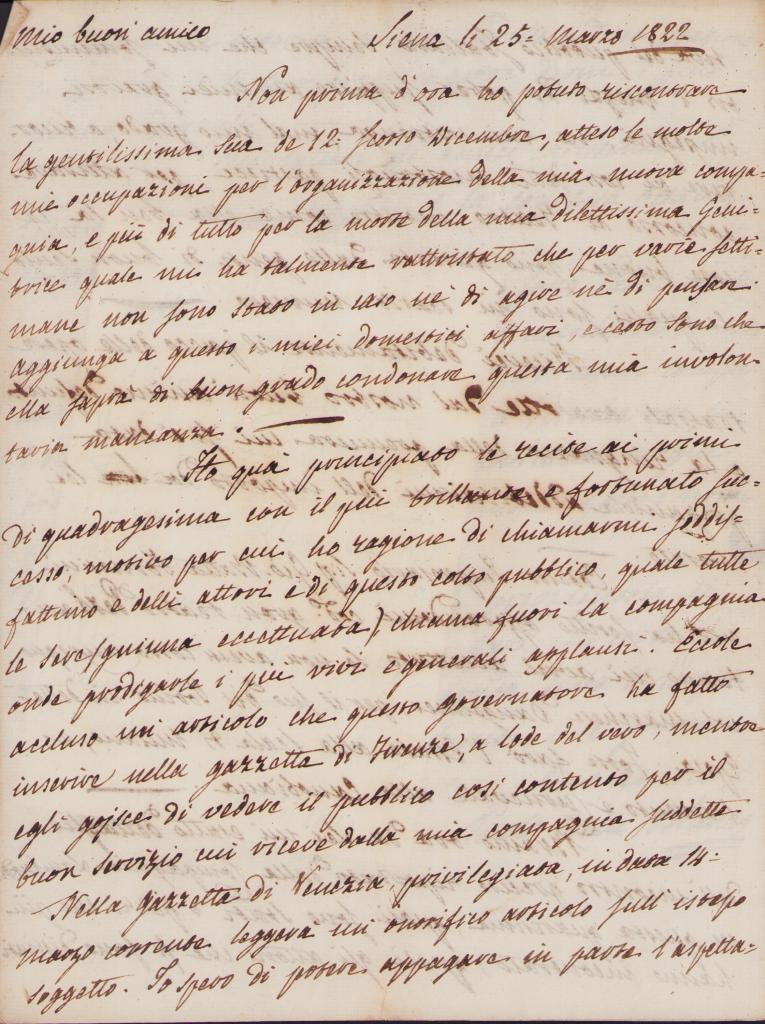 Mio buon amico Siena li 25= Marzo 1822
Non prima d'ora ho potuto riscontrare
la gentilissima sua de 12: scorso Dicembre, atteso le molte
mie occupazioni per l'organizzazione della mia nuova compa=
gnia, e più di tutto per la morte della mia dilettissima Geni=
trice quale mi ha talmente rattristato che per varie setti=
mane non sono stato in caso nè di agire nè di pensare:
aggiunga a questo i miei domestici affari, e certo sono che
ella saprà di buon grado condonare questa mia involon
taria mancanza.
Ho quà principiato le recite ai primi
di quadragesima con il più brillante e fortunato suc=
cesso, motivo per cui ho ragione di chiamarmi soddis=
fattimo e delli attori e di questo colto pubblico, quale tutte
le sere (gniuna eccettuata) chiama fuori la compagnia
onde prodigarle i più vivi e generali applausi. Eccole
accluso un articolo che questo governatore ha fatto
inserire nella gazzetta di Firenze, a lode del vero, mentre
egli gojsce di vedere il pubblico così contento per il
buon servizio cui riceve dalla mia compagnia suddetta
Nella Gazzetta di Venezia privilegiata, in data 14=
marzo corrente leggerà un onorifico articolo sull'istesso
soggetto. Io spero di potere appagare in parte l'aspetta=